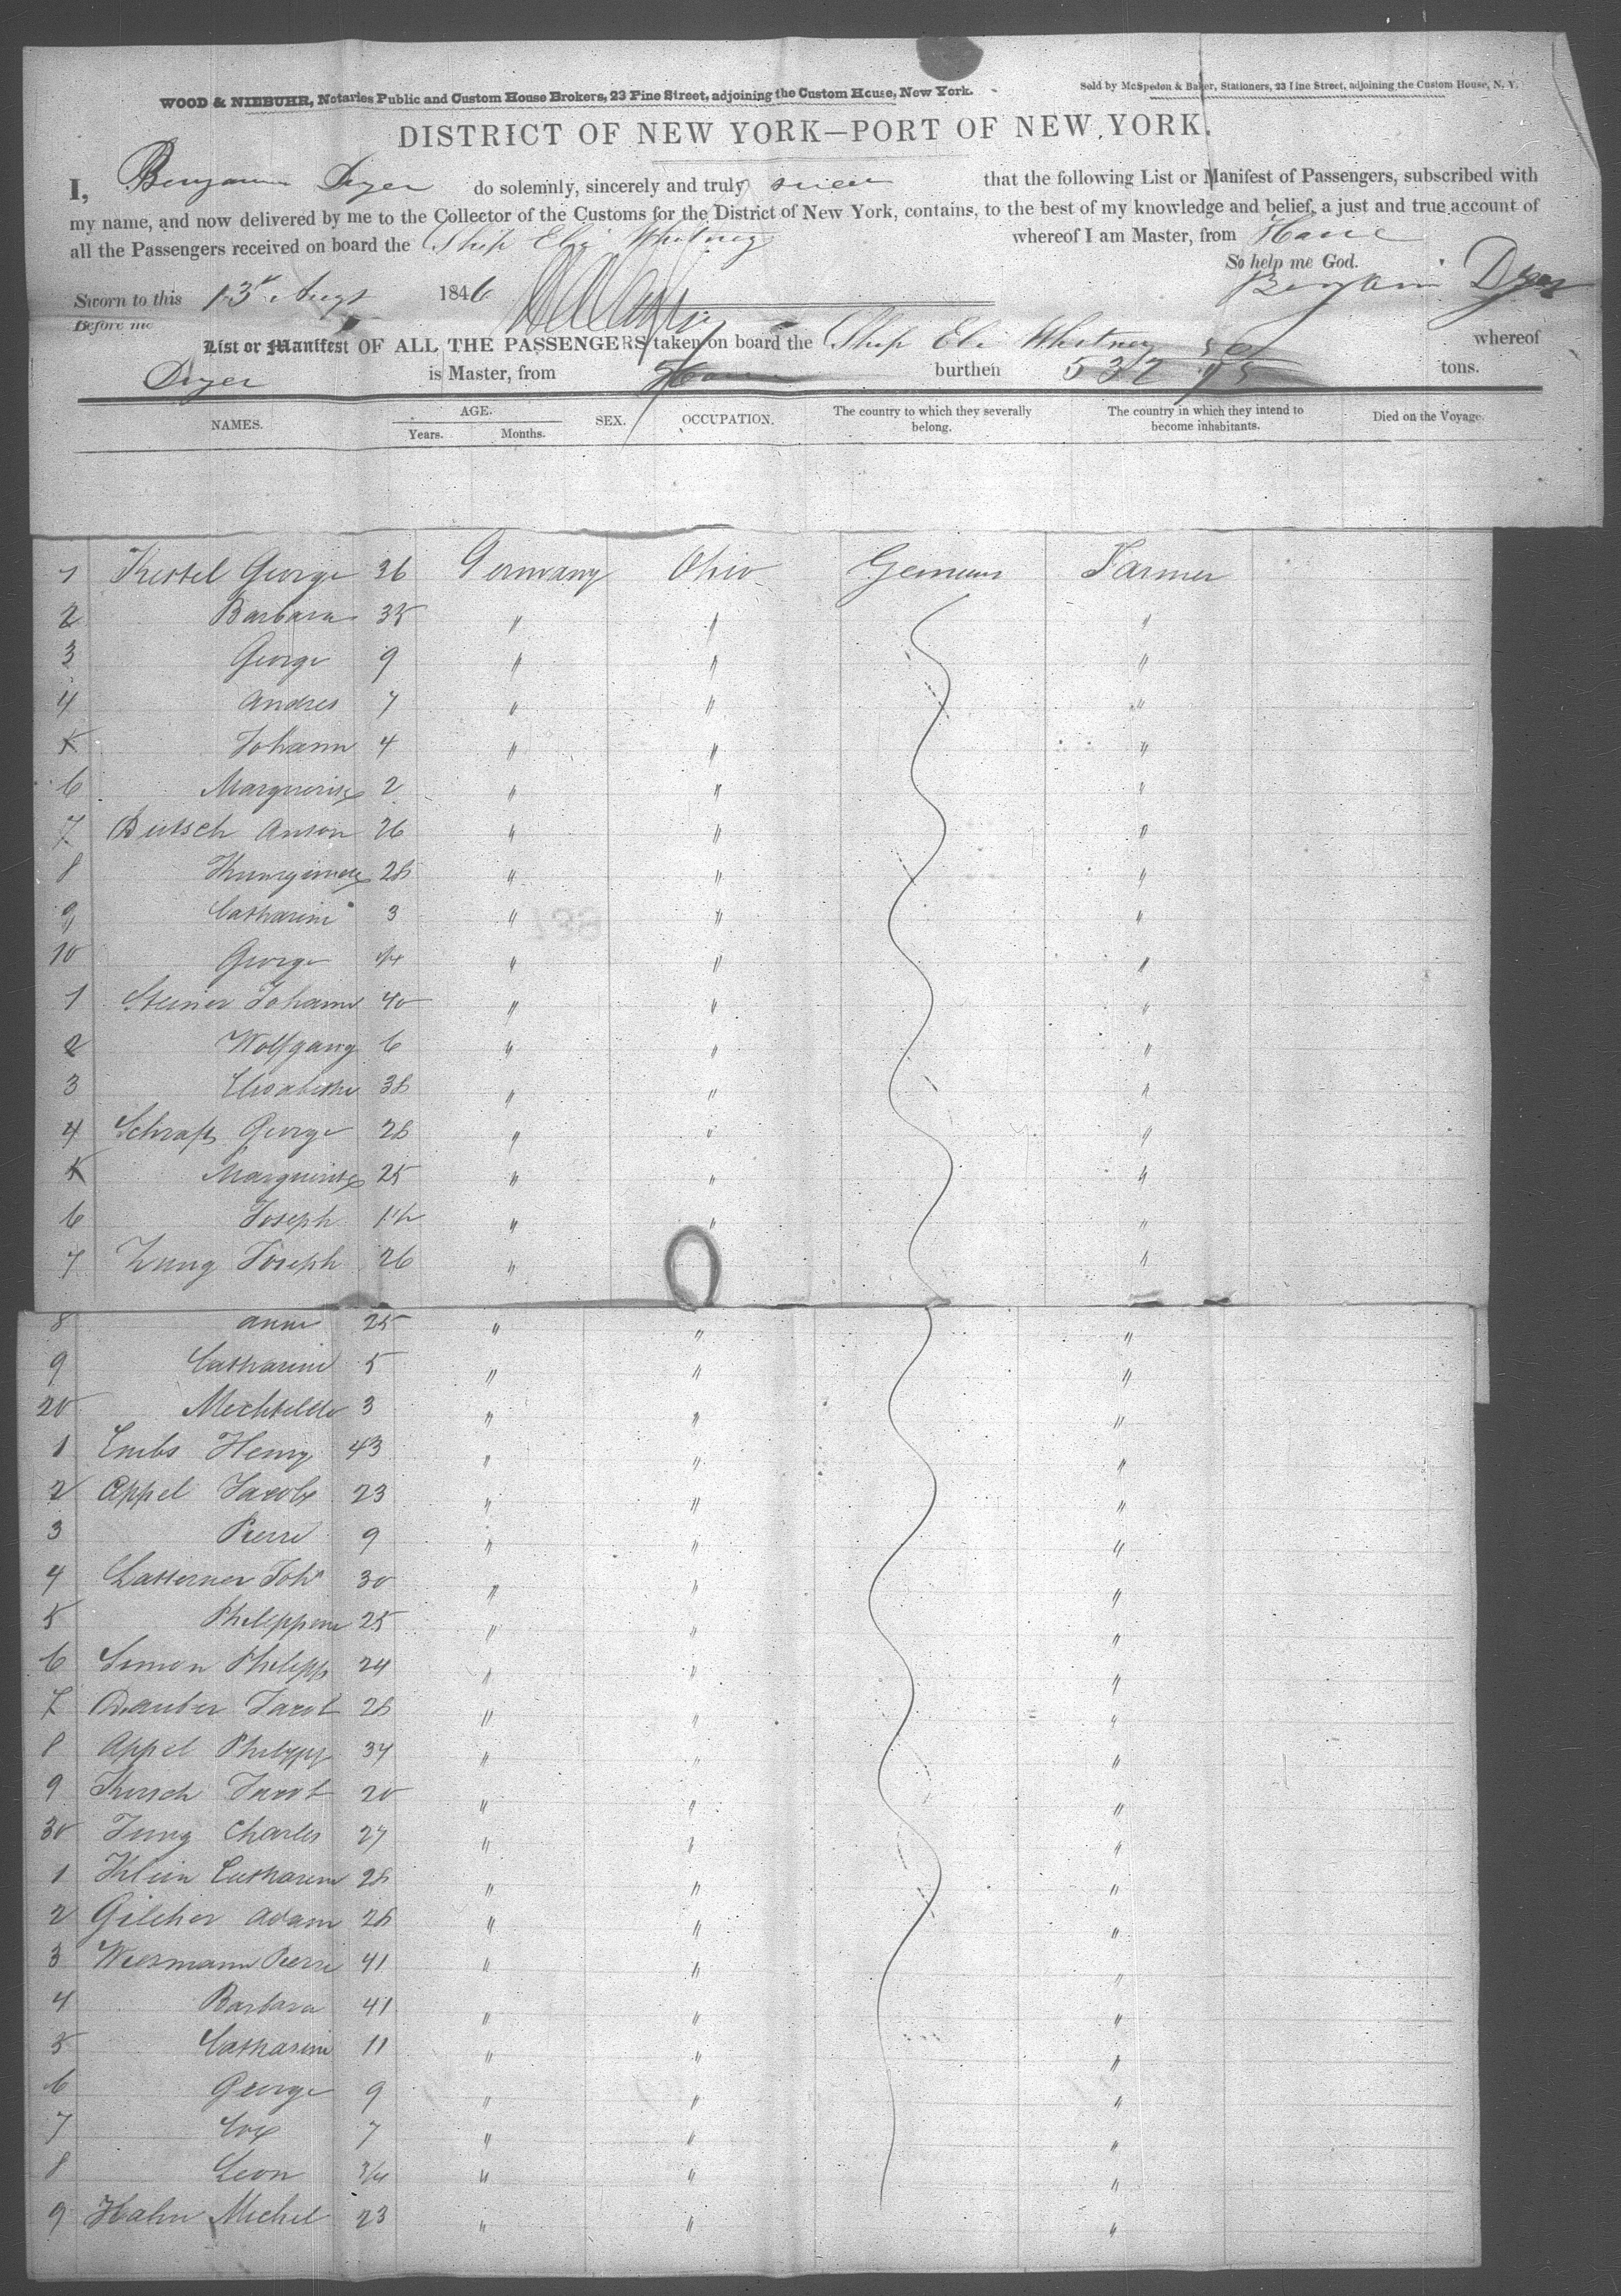 WOOD & NIEBUHR, Notaries Public and Custom House Brokers, 23 Pine Street, adjoining the Custom House, New York.
Sold by McSpedon & Baker, Stationers, 23 Pine Street, adjoining the Custom House, N. Y.
DISTRICT OF NEW YORK—PORT OF NEW YORK.
I, Benjamin Dyer do solemnly, sincerely and truly swear that the following List or Manifest of Passengers, subscribed with
my name, and now delivered by me to the Collector of the Customs for the District of New York, contains, to the best of my knowledge and belief, a just and true account of
all the Passengers received on board the Ship Eli Whitney whereof I am Master, from Havre
So help me God.
Sworn to this 13th Augt 1846 Benjamin Dyer
Before me
List or Manifest OF ALL THE PASSENGERS taken on board the Ship Eli Whitney whereof
Dyer is Master, from Havre burthen 532 tons.
NAMES. AGE. SEX. OCCUPATION. The country to which they severally belong. The country in which they intend to become inhabitants. Died on the Voyage.
Years. Months.
1 Kestel George 36 Germany Ohio Farmer
2 Barbara 35 " " "
3 George 9 " " "
4 Andres 7 " " "
5 Johann 4 " " "
6 Marguerite 2 " " "
7 Deutsch Anton 26 " " "
8 28 " " "
9 Catharine 3 " " "
10 George " " "
1 Steiner Johann 40 " " "
2 Wolfgang 6 " " "
3 Elisabethe 38 " " "
4 Schraft George 28 " " "
5 Marguerite 25 " " "
6 Joseph 1½ " " "
7 Zung Joseph 26 " "
8 Anne 25 " " "
9 Catharine 5 " " "
20 Mechtilde 3 " " "
1 Embs Henry 43 " " "
2 Appel Jacob 23 " " "
3 Pierre 9 " " "
4 Latterner Joh 30 " " "
5 Philippine 25 " " "
6 Simon Philipp 24 " " "
7 Dauber Jacob 28 " " "
8 Appel Philipp 34 " " "
9 Kirsch Jacob 20 " " "
30 Jung Charles 27 " " "
1 Klein Catharine 28 " " "
2 Gilcher Adam 28 " " "
3 Weismann Pierre 41 " " "
4 Barbara 41 " " "
5 Catharine 11 " " "
6 George 9 " " "
7 Eve 7 " " "
8 Leon 3/4 " " "
9 Hahn Michel 23 " " "